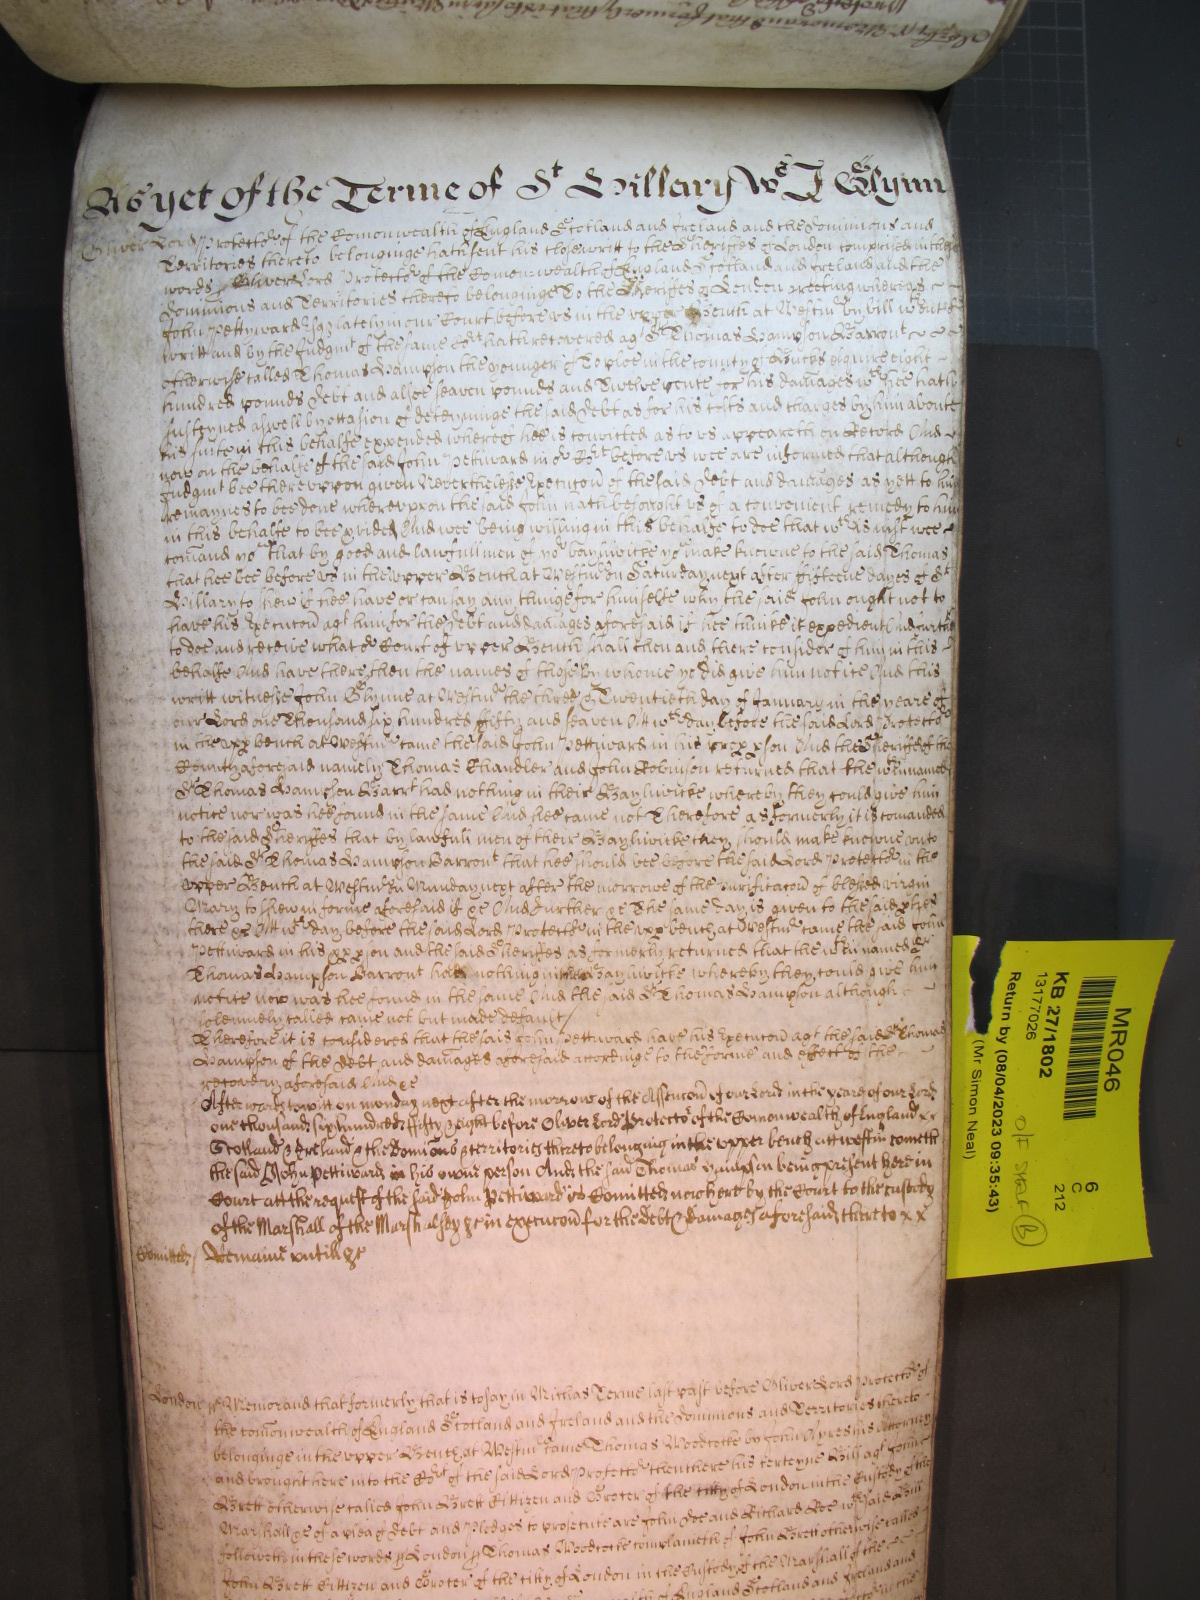 As yet of the Terme of St Hillary Wes J Glynn
Oliver Lord Protector of the Comonwealth of England Scotland and Ireland and the Dominions and
Territories thereto belonginge hath sent his close writt to the Sheriffes of London comprised in these
words Oliver Lord Protector of the Comonwealth of England Scotland and Ireland and the
Dominions and Territories thereto belonginge To the Sheriffes of London greeting whereas
John Pettyward Esq lately in our Court before us in the upper Bench at Westmr by bill without
writt and by the Judgmt of the same Court hath recovered agt Sr Thomas Hampson Barront
otherwise called Thomas Hampson the younger of Toploe in the county of Bucks esquire eight
hundred pounds debt and alsoe seaven pounds and Twelve pence for his damages wch hee hath
susteyned aswell by occasion of deteyninge the said debt as for his costs and charges by him aboute
his suite in this behalfe expended whereof hee is convicted as to us appeareth on Record And
now on the behalfe of the said John Pettiward in or Court before us wee are informed that although
Judgmt bee thereuppon given Neverthelesse Execucon of the said Debt and damages as yett to him
remaynes to bee done whereupon the said John hath besought us of a convenient remedy to him
in this behalfe to bee pvided And wee being willing in this behalfe to doe that wch is just wee
comand yow that by good and lawfull men of yor bayliwicke yow make knowne to the said Thomas
that hee bee before us in the upper Bench at Westmr On Saturday next after fifteene dayes of St
Hillary to shew if hee have or can say any thinge for himselfe why the said John ought not to
have his Execucon agt him for the debt and damages aforesaid if hee thinke it expedient And further
to doe and receive what or Court of upper Bench shall then and there consider of him in this
behalfe And have there then the names of those by whome yow did give him notice And this
writt witnesse John Glynne at Westmr the three & Twentieth day of January in the yeare of
our Lord one Thousand six hundred fifty and seaven Att wch day before the said Lord Protector
in the upp bench at Westmr came the said John Pettiward in his pper pson And the Sheriffes of the
Comitty aforesaid namely Thomas Chandler and John Robinson returned that the within named
Sr Thomas Hampson Barrt had nothing in their Bayliwicke whereby they could give him
notice nor was hee found in the same And hee came not Therefore as formerly it is comanded
to the said Sheriffes that by lawfull men of their Bayliwicke they should make knowne unto
the said Sr Thomas Hampson Barront that hee should bee before the said Lord Protector in the
upper Bench at Westmr On Munday next after the morrowe of the purificacon of blessed virgin
Mary to shew in forme aforesaid if &c And further &c The same day is given to the said
there &c Att wch day before the said Lord Protector in the upp bench at Westmr came the said John
Pettiward in his pper pson and the said Sheriffes as formerly returned that the within named Sr
Thomas Hampson Barront had nothing in their Bayliwicke whereby they could give him
notice nor was hee found in the same And the said Sr Thomas Hampson although
solemnely called came not but made default
Therefore it is considered that the said John Pettiward have his Execucon agt the said Sr Thomas
Hampson of the debt and damages aforesaid accordinge to the forme and effect of the
recovery aforesaid And &c
Afterwards to witt on monday next after the morrow of the Assencon of our Lord in the yeare of our Lord
one thousand six hundred fifty & eight before Oliver Lord Protector of the Comonwealth of England
Scotland & Ireland & the Domions & territories thereto belonging in the upper bench att westmr cometh
the said John Pettiward in his owne person And the said Thomas Hampson being present here in
Court att the request of the said John Pettiward is Comitted now here by the Court to the custody
of the Marshall of the Marshalsey &c in execucon for the debt & damages aforesaid there to x x
Comitted / Remaine untill &c
London Memorand that formerly that is to say in Michas Terme last past before Oliver Lord Protector of
the comonwealth of England Scotland and Ireland and the Dominions and Territories thereto
belonginge in the upper Bench at Westmr came Thomas Woodcocke by John Ayres his Attorney
and brought here into the Court of the said Lord Protector then there his certeyne Bill agt John
Brett otherwise called John Brett Cittizen and Grocer of the citty of London in the Custody of the
Marshall &c of a plea of debt and Pledges to prosecute are John Doe and Richard Roe wch said Bill
followeth in these words London Thomas Woodcocke complaineth of John Brett otherwise called
John Brett Cittizen and Grocer of the citty of London in the Custody of the Marshall of the
of England Scotland and Ireland and
MR046
KB 27/1802
13177026
Return by (08/04/2023 09:35:43)
(Mr Simon Neal)
6
C
212
O/F SHELF B